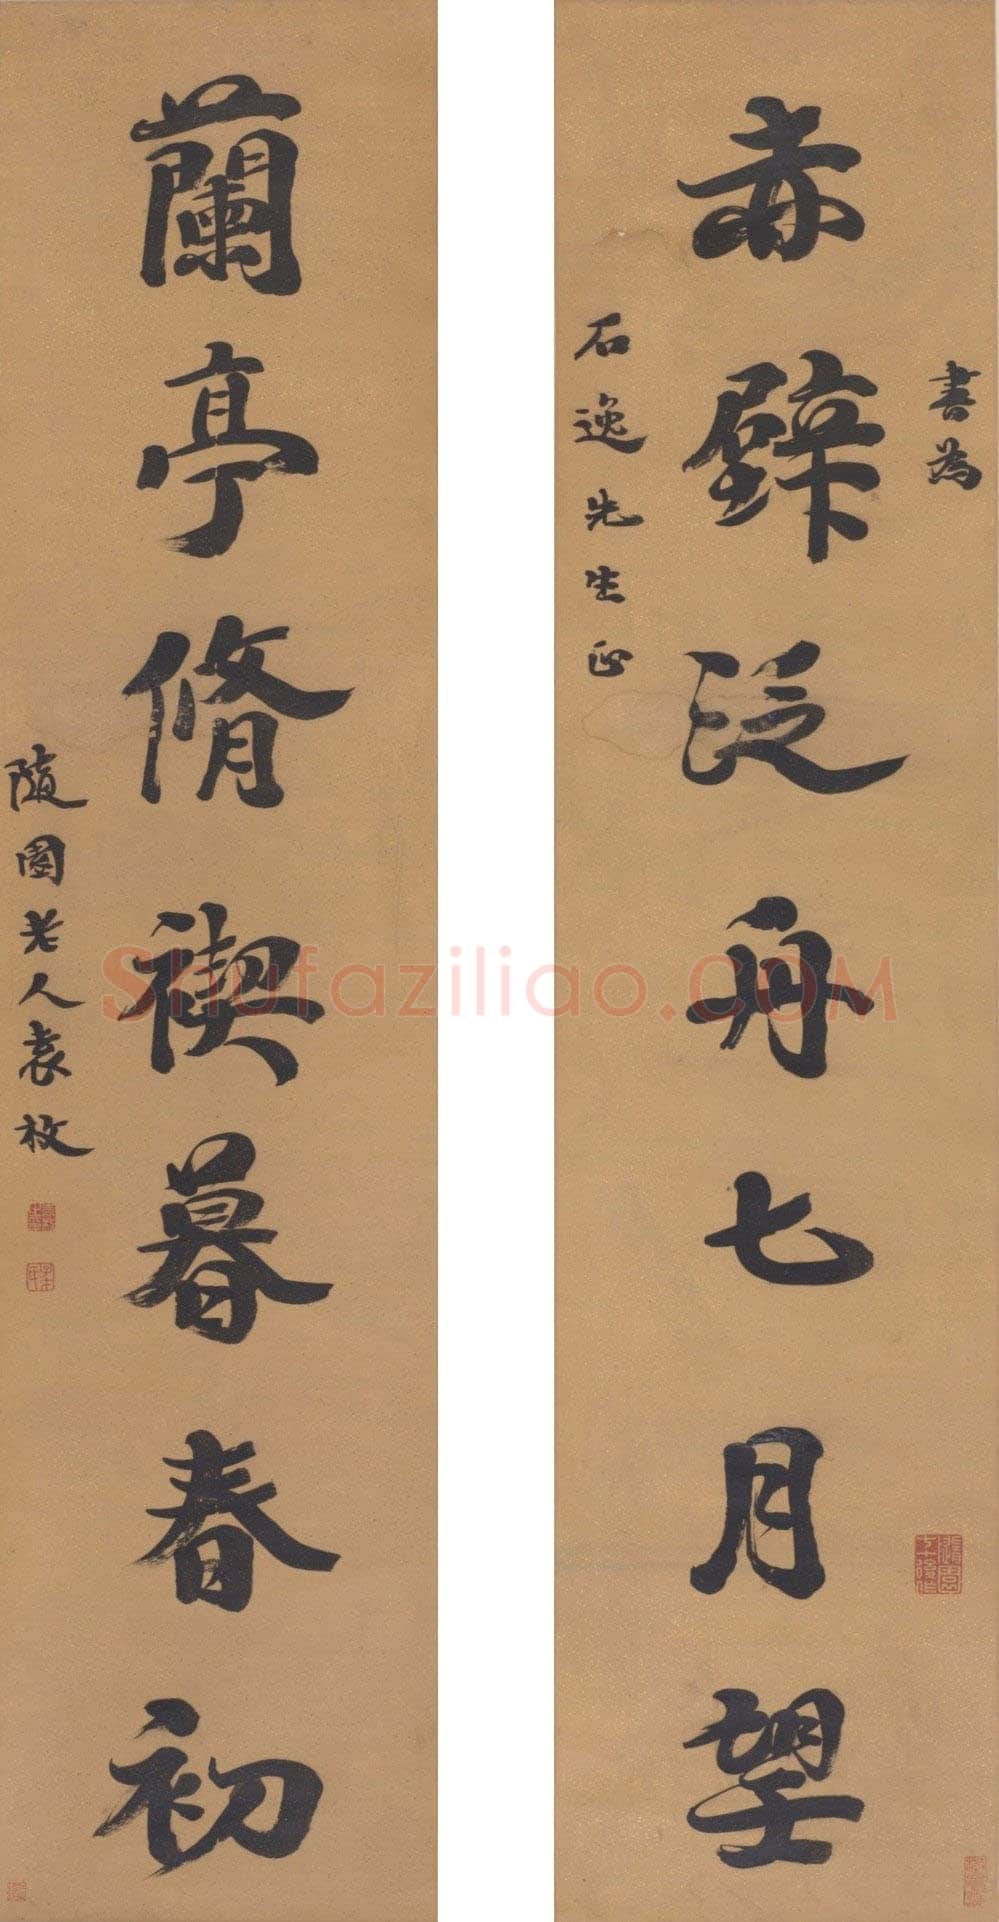 書為
赤壁泛舟七月望
石逸先生正
蘭亭脩禊暮春初
隨園老人袁枚
Shufaziliao.COM